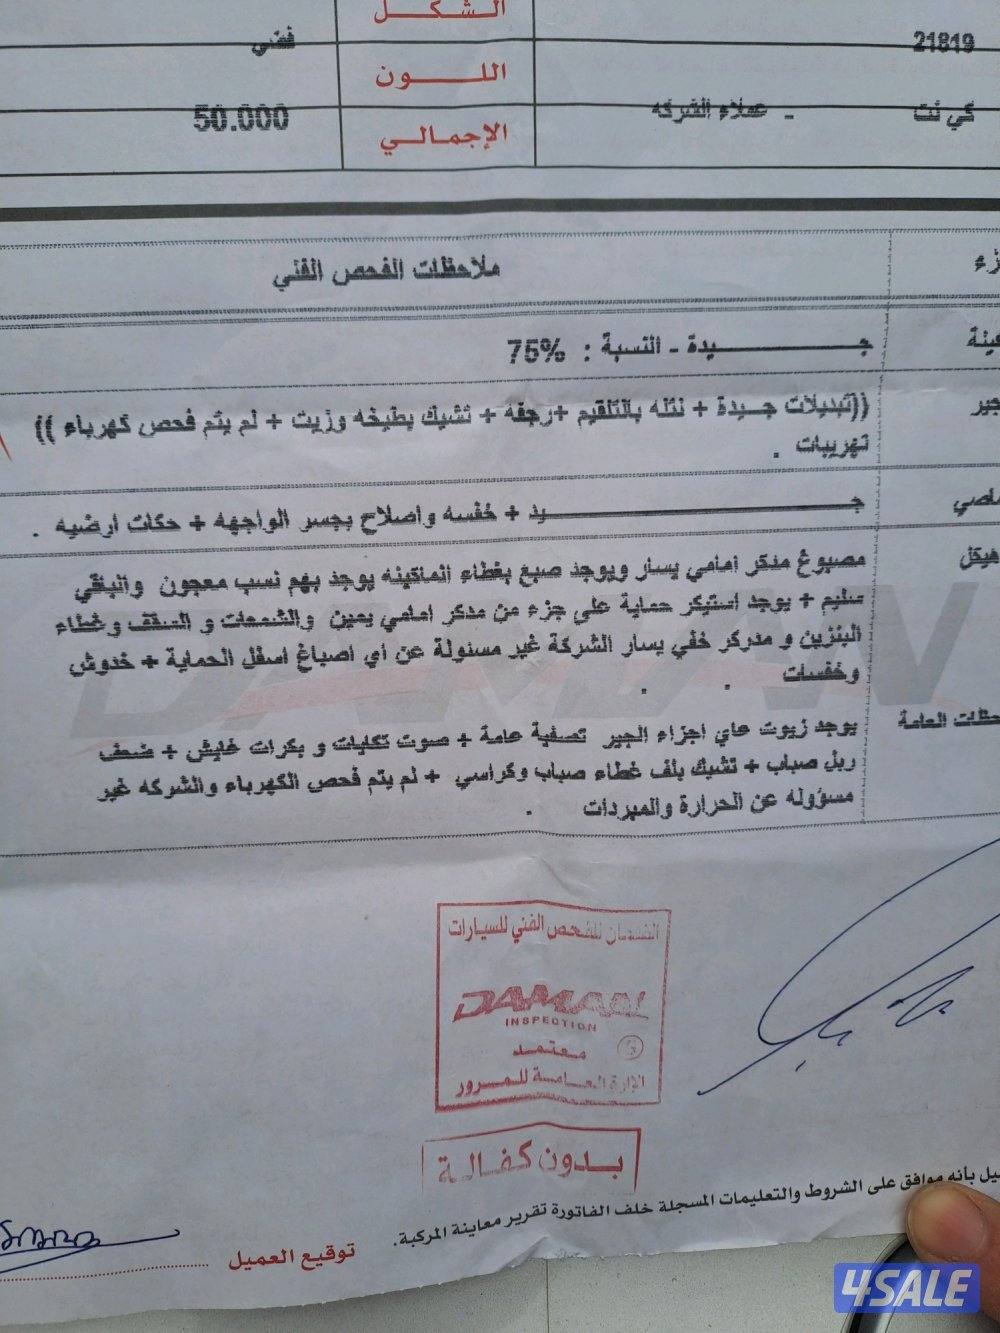 الشكل
21819
اللون
فضي
كي نت - عملاء الشركه
الإجمالي
50.000
ملاحظات الفحص الفني
جيدة - النسبة : 75%
((تبديلات جيدة + نتله بالتلقيم + رجفه + تشيك بطيخه وزيت + لم يتم فحص كهرباء ))
تهريبات .
جيد + خفسه واصلاح بجسر الواجهه + حكات ارضيه .
مصبوغ مدكر امامي يسار ويوجد صبغ بغطاء الماكينه يوجد بهم نسب معجون والباقي
سليم + يوجد استيكر حماية على جزء من مدكر امامي يمين والشمعات و السقف وغطاء
البنزين و مدركر خفي يسار الشركة غير مسئولة عن أي اصباغ اسفل الحماية + خدوش
وخفسات . .
يوجد زيوت عاي اجزاء الجير تصفية عامة + صوت تكليات و بكرات غليش + ضعف
ربل صباب + تشيك بلف غطاء صباب وكراسي + لم يتم فحص الكهرباء والشركه غير
مسؤوله عن الحرارة والمبردات .
DAMAN
الضمان للفحص الفني للسيارات
DAMAN
INSPECTION
معتمد
الإدارة العامة للمرور
بدون كفالة
بأنه موافق على الشروط والتعليمات المسجلة خلف الفاتورة تقرير معاينة المركبة.
توقيع العميل
4SALE